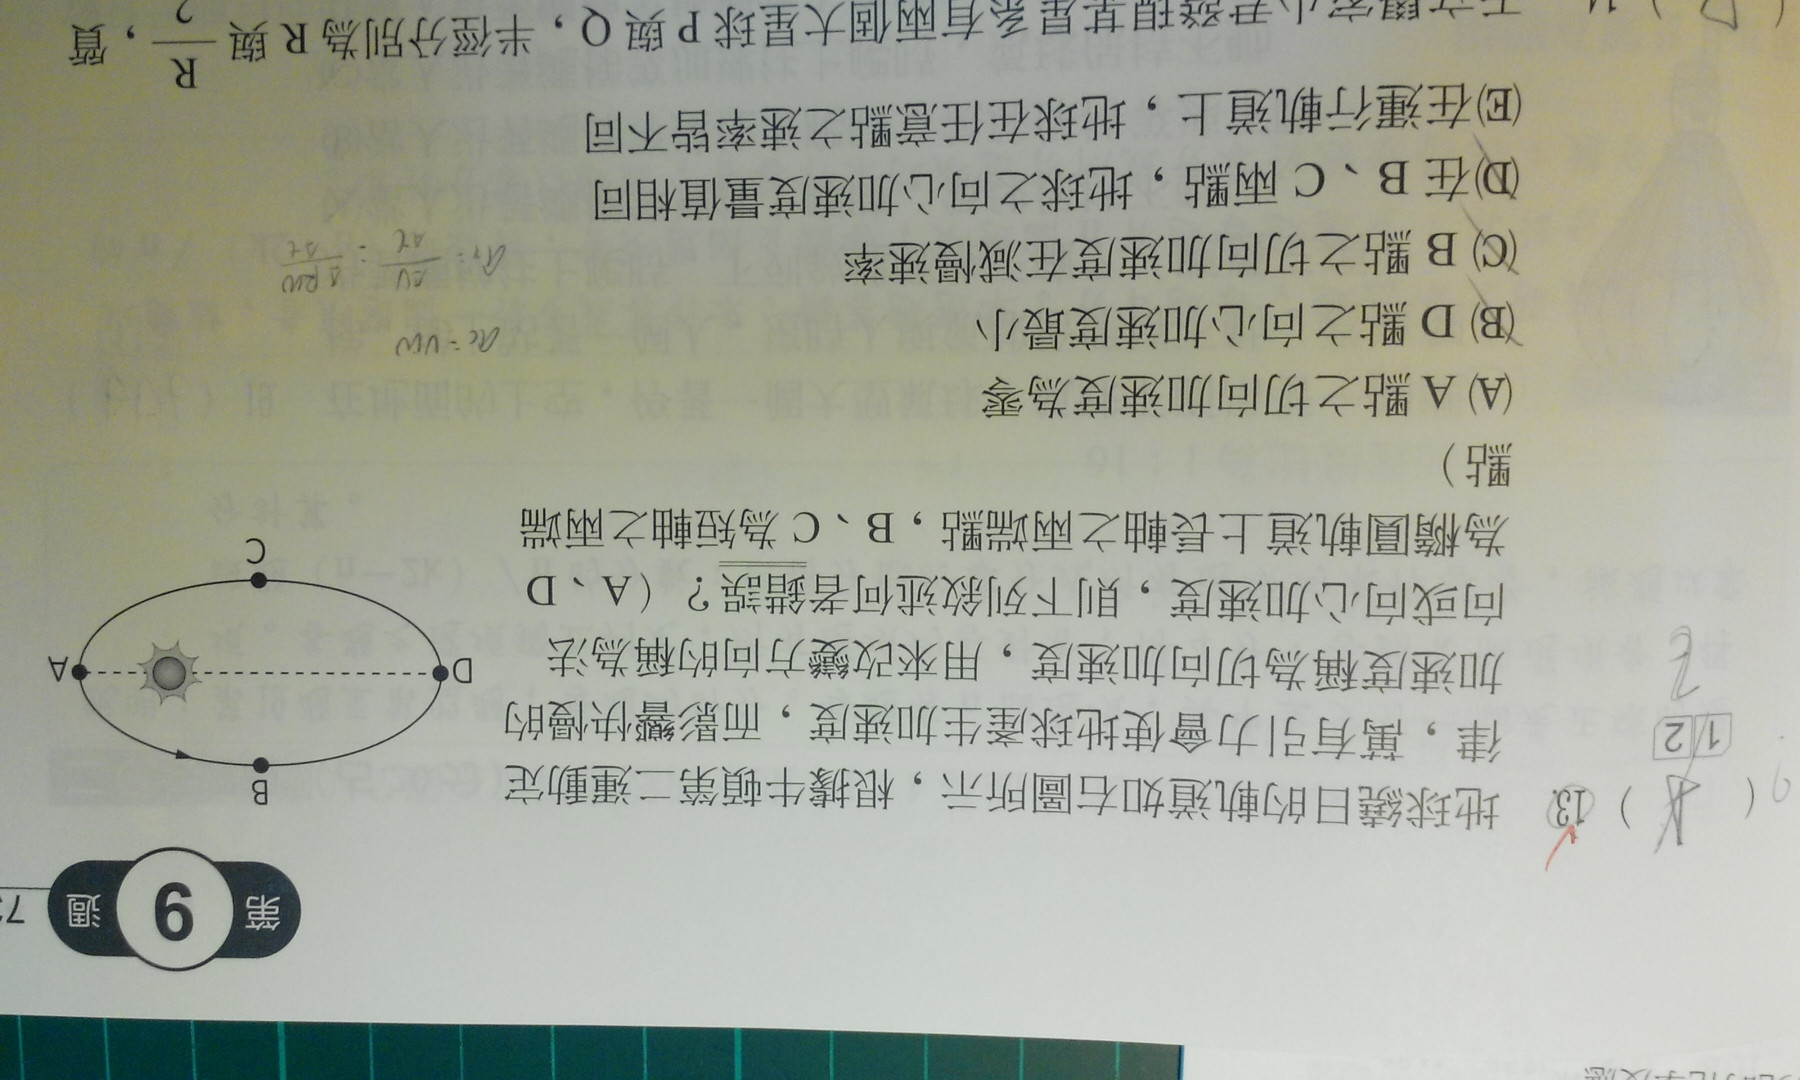 第 9 週
13. 地球繞日的軌道如右圖所示，根據牛頓第二運動定
律，萬有引力會使地球產生加速度，而影響快慢的
加速度稱為切向加速度，用來改變方向的稱為法
向或向心加速度，則下列敘述何者錯誤？（A、D
為橢圓軌道上長軸之兩端點，B、C 為短軸之兩端
點）
(A) A 點之切向加速度為零
(B) D 點之向心加速度最小
(C) B 點之切向加速度在減慢速率
(D) 在 B、C 兩點，地球之向心加速度量值相同
(E) 在運行軌道上，地球在任意點之速率皆不同
1 2
B
D
A
C
某星系有兩個大星球 P 與 Q，半徑分別為 R 與 R/2，質